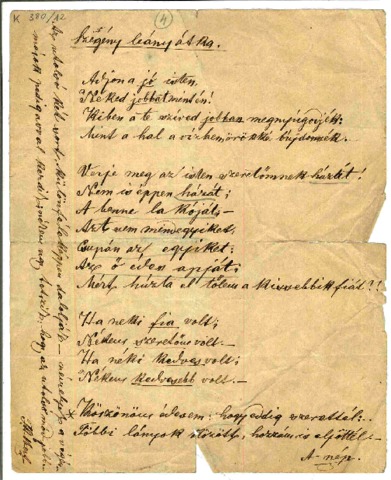 K 380/12
4
Szegény leány átka.
Adjon a jó isten
Neked jobbat mint én!
Kiben a te szived jobban megnyúgodjék;
Mint a hal a vizben örökké bújdossék.
Verje meg az isten szeretőmnek házát!
Nem is éppen házát;
A benne lakóját,—
Azt nem mindegyiket
Csupán az egyiket:
Az ő édes apját;
Mért húzta el tőlem a kissebbik fiát??
Ha neki fia volt;
Nékem szeretőm volt.—
Ha néki kedves volt;
Nékem kedvesebb volt.—
Köszönöm édesem: hogy eddig szerettél:
Többi lányok előtt, hozzám is eljöttél.—
A nép.
Az utolsó két sort különféleképpen dalolják —